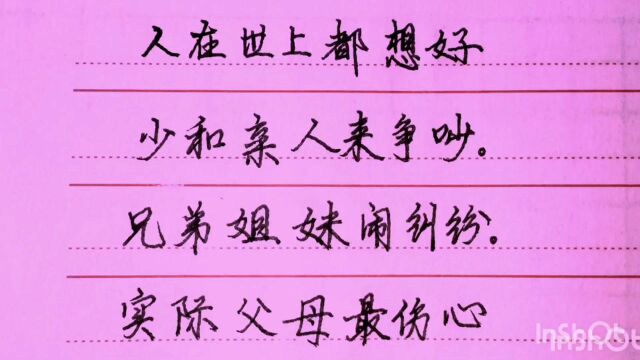 人在世上都想好
少和亲人来争吵。
兄弟姐妹闹纠纷。
实际父母最伤心
InShot